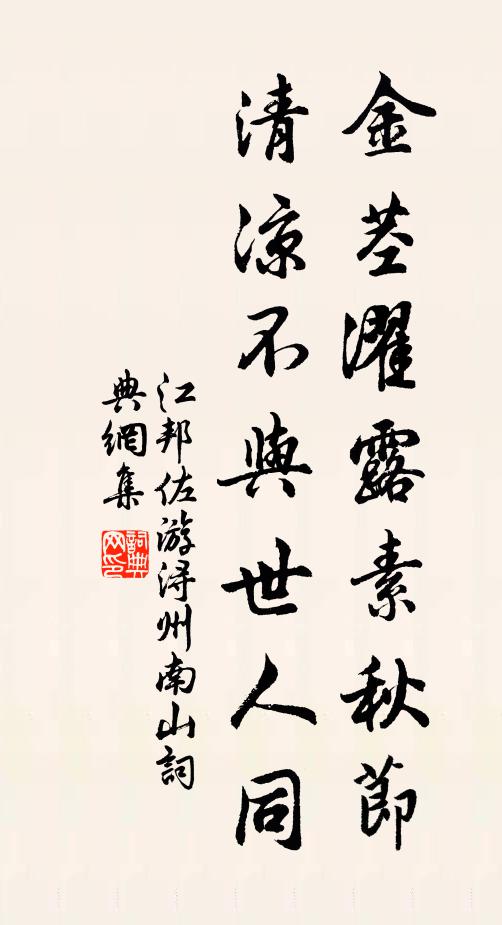 金茎濯露素秋節
清涼不與世人同
江邦佐游浔州南山詞
典網集
詞典
网印